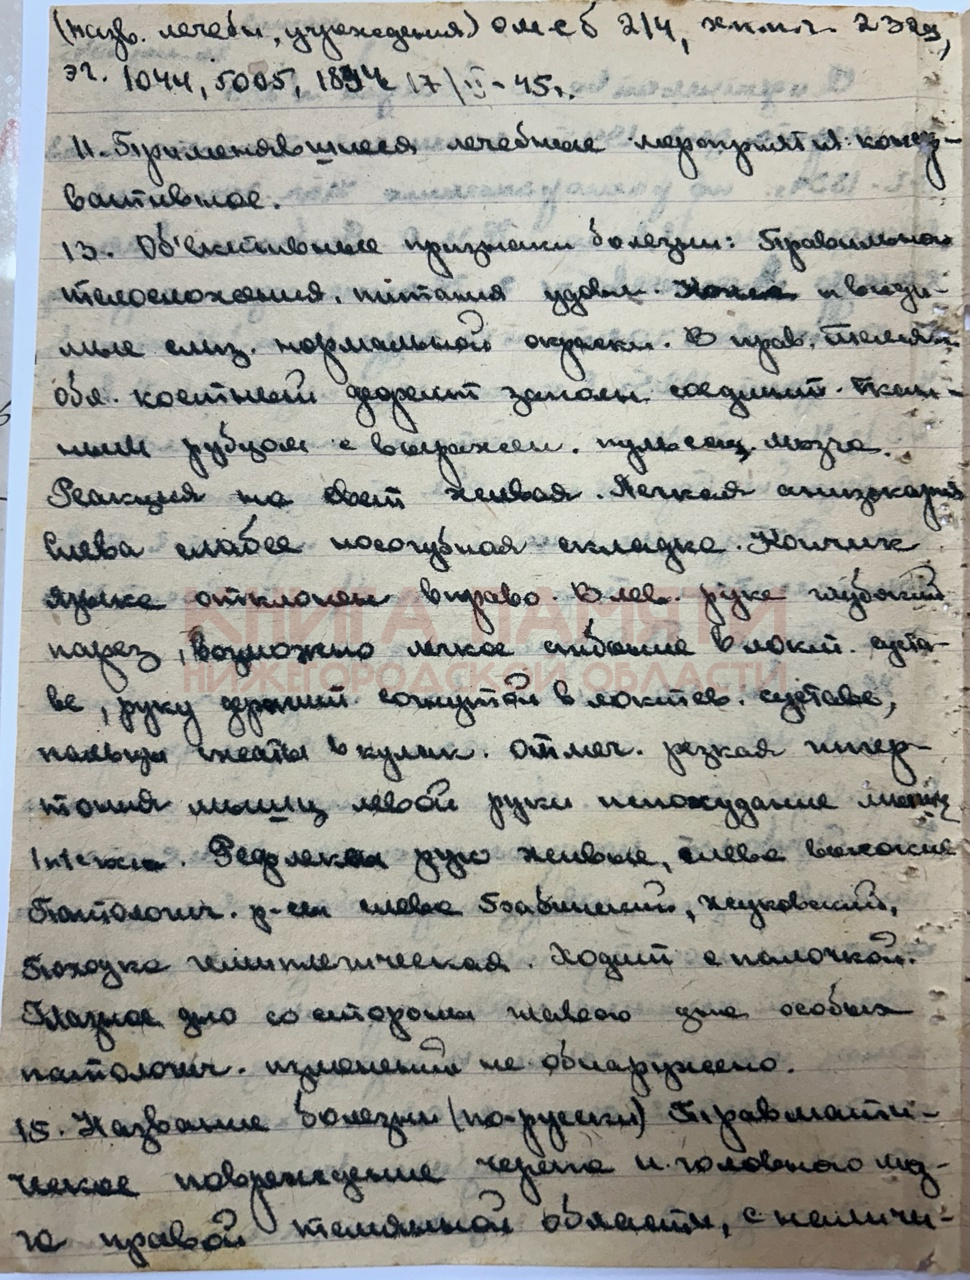 (назв. лечебн, учреждения) омсб 214, хппг. 2329,
эг. 1044, 5005, 1894 17/II-45г.
11. Применявшиеся лечебные мероприятия: консер-
вативное.
13. Об'ективные признаки болезни: Правильного
телосложения, питания удовл. Кожа и види-
мые слиз. нормальной окраски. В прав. темен.
обл. костный дефект заполн. соединит. ткан-
ным рубцом с выражен. пульсац. мозга.
Реакция на свет живая. Легкая анизокория
слева слабее носогубная складка. Кончик
языка отклонен вправо. В лев. руке глубокий
парез, возможно легкое сгибание в локт. суста-
ве, руку держит согнутой в локтев. суставе,
пальцы сжаты в кулак. Отмеч. резкая гипер-
тония мышц левой руки похудание мышц
Рефлексы рук живые, слева высокие
Патологич. р-сы слева Бабинский, Жуковский,
Походка гемиплегическая. Ходит с палочкой.
Глазное дно со стороны глазного дна особых
патологич. изменений не обнаружено.
15. Название болезни (по-русски) Травмати-
ческое повреждение черепа и головного моз-
га правой теменной области, с наличи-
КНИГА ПАМЯТИ
НИЖЕГОРОДСКОЙ ОБЛАСТИ